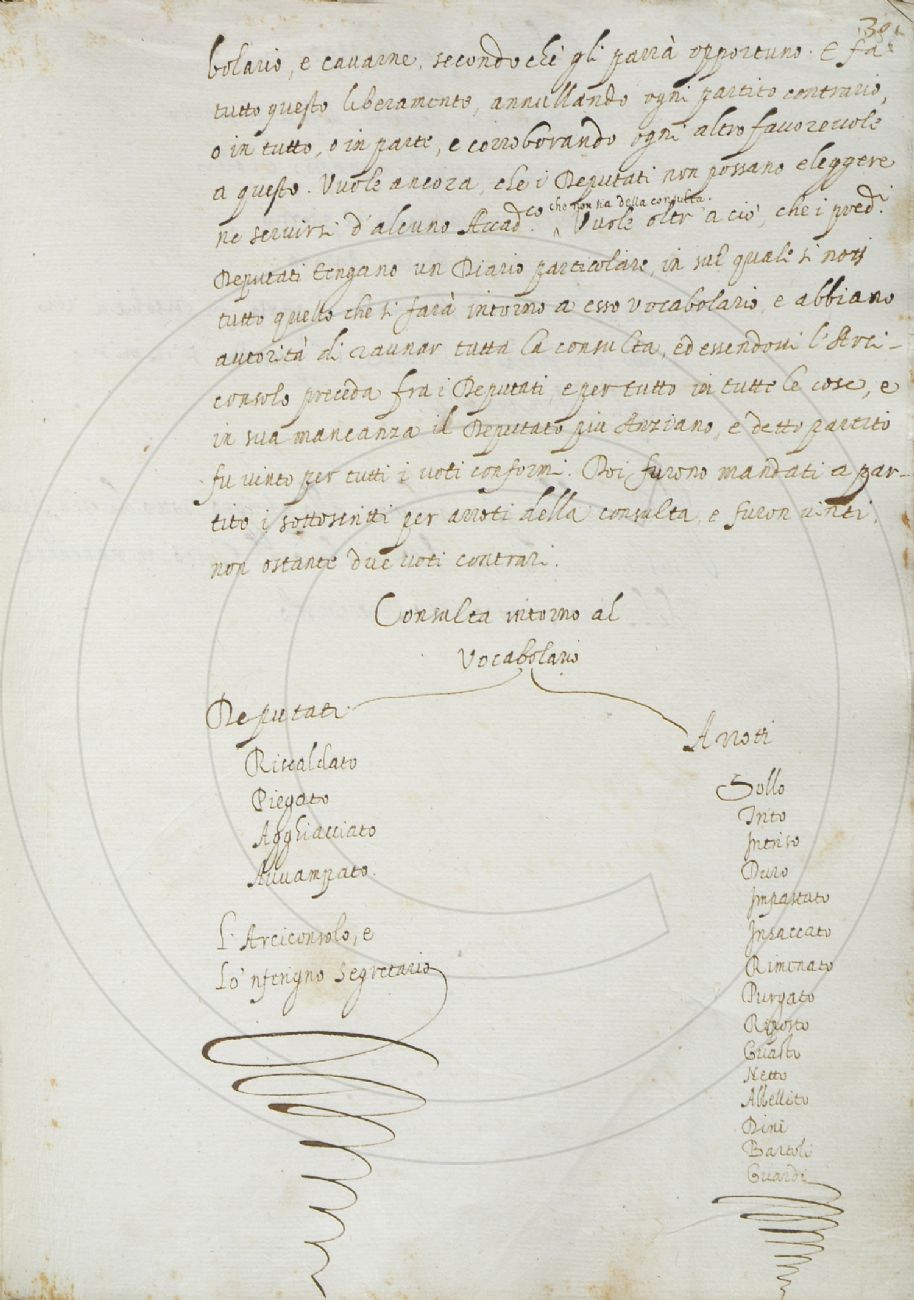 38
bolario, e cavarne, secondo chè gli parrà opportuno. E fa
tutto questo liberamente, annullando ogni partito contrario,
o in tutto, o in parte, e corroborando ogni altro favorevole
a questo. Vuole ancora, che i Deputati non possano eleggere
che non sia della consulta.
ne servirsi d'alcuno Accad.co Vuole oltr' a ciò, che i pred.i
Deputati tengano un Diario particolare, in sul quale si noti
tutto quello che si farà intorno a esso vocabolario, e abbiano
autorità di raunar tutta la consulta, ed essendovi l'Arci-
consolo preceda fra i Deputati, e per tutto in tutte le cose, e
in sua mancanza il Deputato più Anziano, e detto partito
fu vinto per tutti i voti conformi. Poi furono mandati a par-
tito i sottoscritti per arroti della consulta, e furon vinti,
non ostante due voti contrari.
Consulta intorno al
Vocabolario
Deputati
Riscaldato
Piegato
Agghiacciato
Avvampato.
L'Arciconsolo, e
Lo 'nferigno Segretario
Arroti
Sollo
Trito
Intriso
Duro
Impastato
Insaccato
Rimenato
Purgato
Riposto
Guasto
Netto
Abbellito
Dini
Bartoli
Guardi